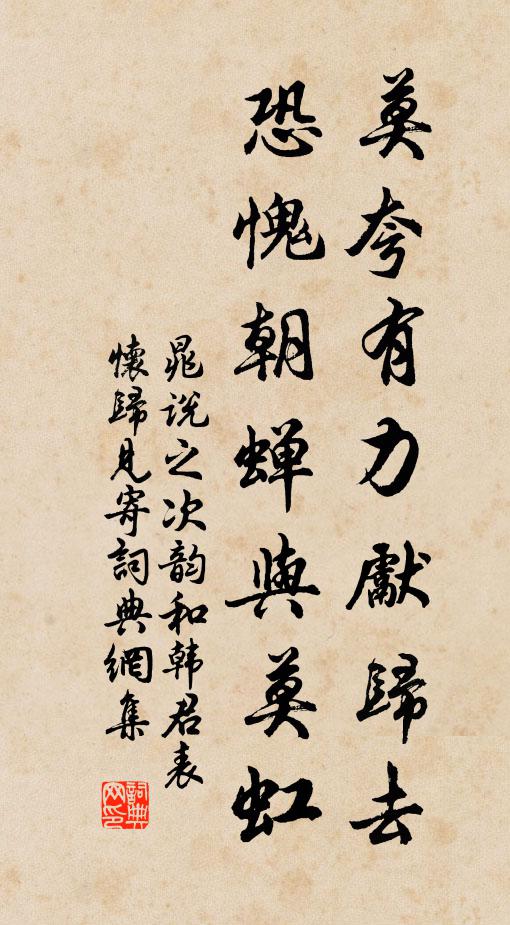 莫夸有力獻歸去
恐愧朝蝉與莫虹
晁说之次韵和韩君表
懷歸見寄詞典網集
詞典
网印